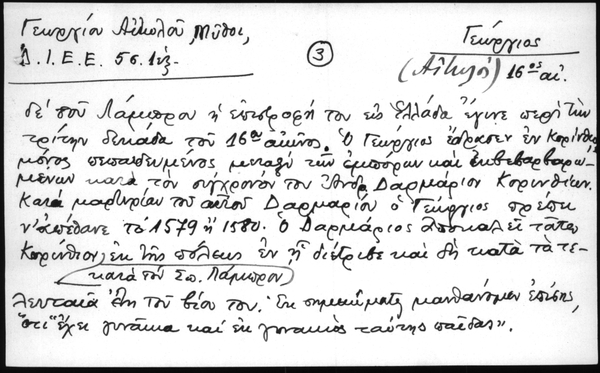 Γεωργίου Αἰτωλοῦ, Μῦθοι,
Δ.Ι.Ε.Ε. 56. 1ἑξ.
3
Γεώργιος
(Αἰτωλός) 16ος αἰ.
δὲ τοῦ Λάμπρου ἡ ἐπιστροφή του εἰς Ἑλλάδα ἔγινε περὶ τὴν
τρίτην δεκάδα τοῦ 16ου αἰῶνος. Ὁ Γεώργιος ἔδρασεν ἐν Κορίνθῳ
μόνος πεπαιδευμένος μεταξὺ τῶν ἐμπόρων καὶ ἐκβεβαρβαρω-
μένων κατὰ τὸν σύγχρονόν του Ἀνδρ. Δαρμάριον Κορινθίων.
Κατὰ μαρτυρίαν τοῦ αὐτοῦ Δαρμαρίου ὁ Γεώργιος πρέπει
ν' ἀπέθανε τὸ 1579 ἢ 1580. Ὁ Δαρμάριος ἀποκαλεῖ τοῦτον
Κορίνθιον, ἐκ τῆς πόλεως ἐν ᾗ διέτριβε καὶ δὴ κατὰ τὰ τε-
κατὰ τὸν Σπ. Λάμπρον
λευταῖα ἔτη τοῦ βίου του. Ἐκ σημειώματος μανθάνομεν ἐπίσης,
"ὅτι "ἔχει γυναῖκα καὶ ἐκ γυναικὸς ταύτης παῖδας".